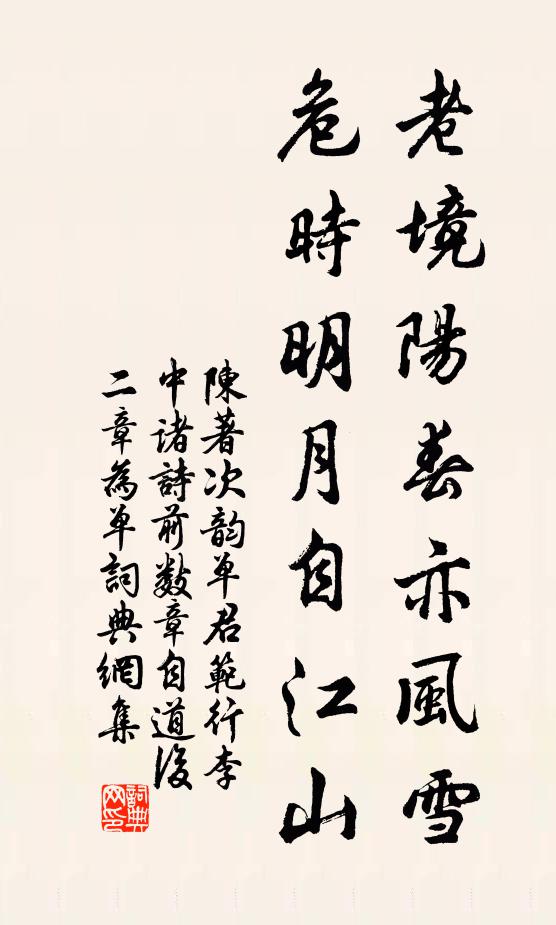 老境陽春亦風雪
危時明月自江山
陳著次韵單君範行李
中诸詩前数章自道後
二章為单詞典網集
詞典网印